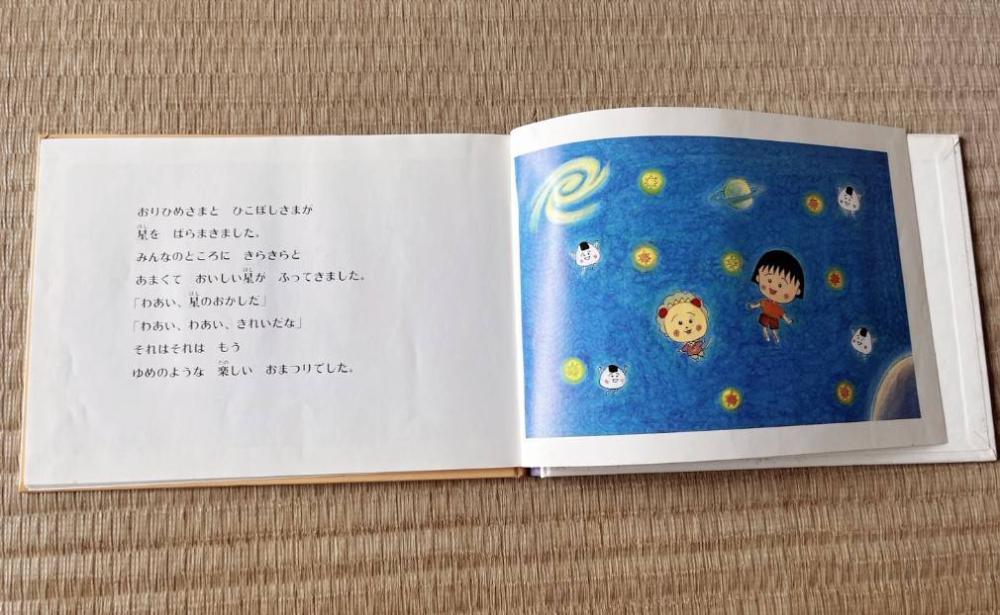 おりひめさまと　ひこぼしさまが
星を　ばらまきました。
みんなのところに　きらきらと
あまくて　おいしい星が　ふってきました。
「わあい、星のおかしだ」
「わあい、わあい、きれいだな」
それはそれは　もう
ゆめのような　楽しい　おまつりでした。